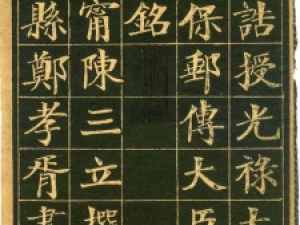 誥授光祿大
保郵傳大臣
銘
甯陳三立撰
縣鄭孝胥書